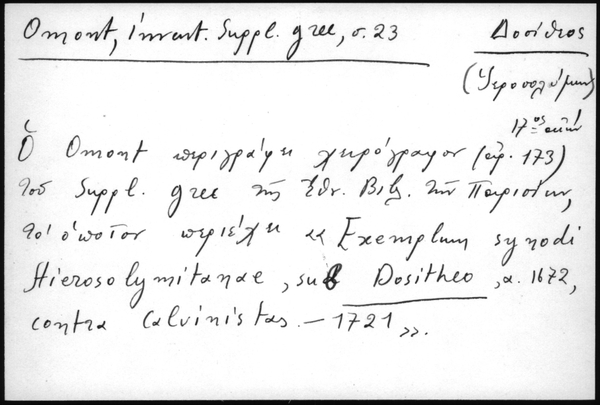 Omont, invent. Suppl. grec, σ. 23
Δοσίθεος
(Ἱεροσολύμων)
17ος αἰών
Ὁ Omont περιγράφει χειρόγραφον (ἀρ. 173)
τοῦ Suppl. grec τῆς Ἐθν. Βιβλ. τῶν Παρισίων,
τὸ ὁποῖον περιέχει «Exemplum synodi
Hierosolymitanae, sub Dositheo, a. 1672,
contra Calvinistas. — 1721».